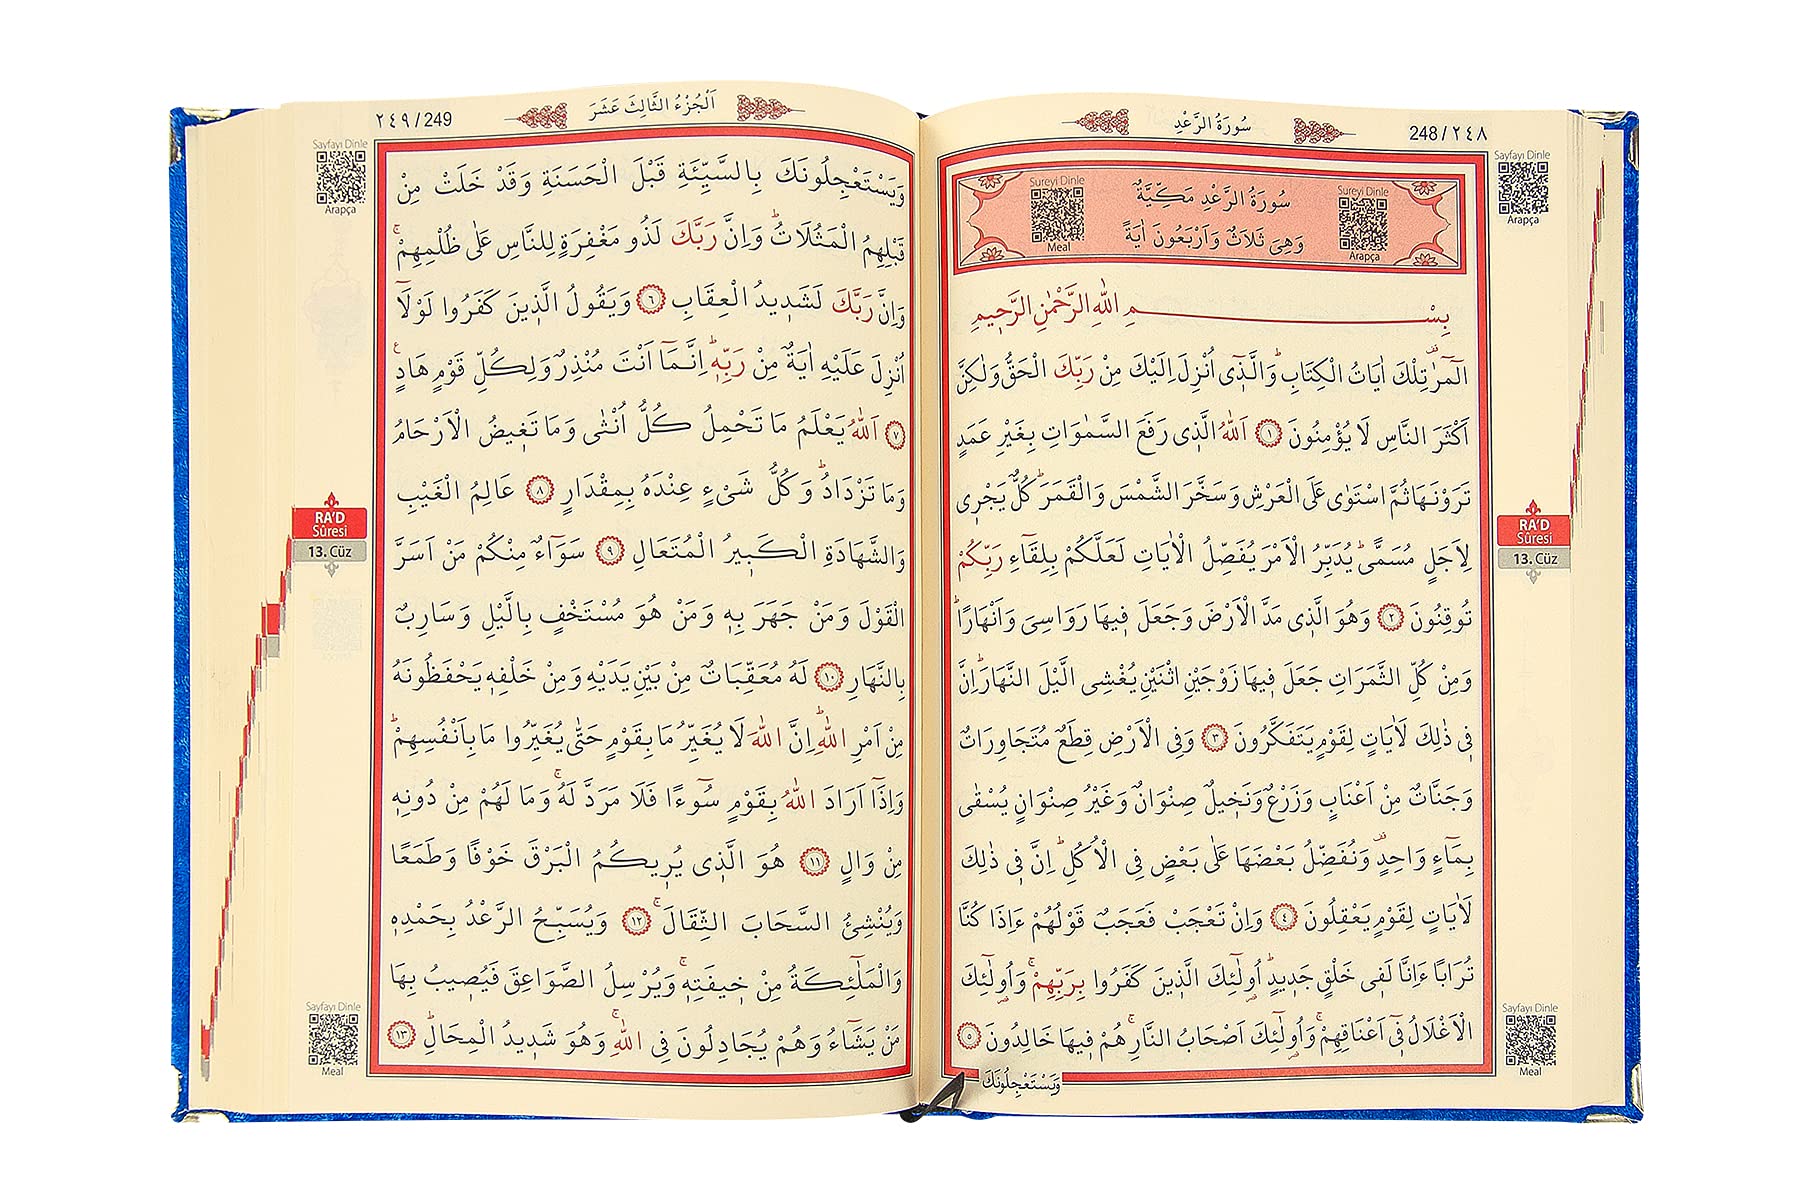 سُورَةُ الرَّعْدِ
248/٢٤٨
Sureyi Dinle
Meal
سُورَةُ الرَّعْدِ مَكِّيَّةٌ
وَهِيَ ثَلَاثٌ وَاَرْبَعُونَ اٰيَةً
Sureyi Dinle
Arapça
Sayfayı Dinle
Arapça
بِسْمِ اللّٰهِ الرَّحْمٰنِ الرَّحِيمِ
الٓمٓرٰ۠ تِلْكَ اٰيَاتُ الْكِتَابِۜ وَالَّذٖٓي اُنْزِلَ اِلَيْكَ مِنْ رَبِّكَ الْحَقُّ وَلٰكِنَّ
اَكْثَرَ النَّاسِ لَا يُؤْمِنُونَ ١ اَللّٰهُ الَّذٖي رَفَعَ السَّمٰوَاتِ بِغَيْرِ عَمَدٍ
تَرَوْنَهَا ثُمَّ اسْتَوٰى عَلَى الْعَرْشِ وَسَخَّرَ الشَّمْسَ وَالْقَمَرَۜ كُلٌّ يَجْرٖي
لِاَجَلٍ مُسَمًّىۜ يُدَبِّرُ الْاَمْرَ يُفَصِّلُ الْاٰيَاتِ لَعَلَّكُمْ بِلِقَٓاءِ رَبِّكُمْ
تُوقِنُونَ ٢ وَهُوَ الَّذٖي مَدَّ الْاَرْضَ وَجَعَلَ فٖيهَا رَوَاسِيَ وَاَنْهَارًاۜ
وَمِنْ كُلِّ الثَّمَرَاتِ جَعَلَ فٖيهَا زَوْجَيْنِ اثْنَيْنِ يُغْشِي الَّيْلَ النَّهَارَۜ اِنَّ
فٖي ذٰلِكَ لَاٰيَاتٍ لِقَوْمٍ يَتَفَكَّرُونَ ٣ وَفِي الْاَرْضِ قِطَعٌ مُتَجَاوِرَاتٌ
وَجَنَّاتٌ مِنْ اَعْنَابٍ وَزَرْعٌ وَنَخٖيلٌ صِنْوَانٌ وَغَيْرُ صِنْوَانٍ يُسْقٰى
بِمَٓاءٍ وَاحِدٍ۠ وَنُفَضِّلُ بَعْضَهَا عَلٰى بَعْضٍ فِي الْاُكُلِۜ اِنَّ فٖي ذٰلِكَ
لَاٰيَاتٍ لِقَوْمٍ يَعْقِلُونَ ٤ وَاِنْ تَعْجَبْ فَعَجَبٌ قَوْلُهُمْ ءَاِذَا كُنَّا
تُرَابًا ءَاِنَّا لَفٖي خَلْقٍ جَدٖيدٍۜ اُو۬لٰٓئِكَ الَّذٖينَ كَفَرُوا بِرَبِّهِمْۚ وَاُو۬لٰٓئِكَ
الْاَغْلَالُ فٖٓي اَعْنَاقِهِمْۚ وَاُو۬لٰٓئِكَ اَصْحَابُ النَّارِۚ هُمْ فٖيهَا خَالِدُونَ ٥
وَيَسْتَعْجِلُونَكَ
RA'D
Sûresi
13. Cüz
Sayfayı Dinle
Meal
اَلْجُزْءُ الثَّالِثَ عَشَرَ
٢٤٩/249
Sayfayı Dinle
Arapça
وَيَسْتَعْجِلُونَكَ بِالسَّيِّئَةِ قَبْلَ الْحَسَنَةِ وَقَدْ خَلَتْ مِنْ
قَبْلِهِمُ الْمَثُلَاتُۜ وَاِنَّ رَبَّكَ لَذُو مَغْفِرَةٍ لِلنَّاسِ عَلٰى ظُلْمِهِمْۚ
وَاِنَّ رَبَّكَ لَشَدٖيدُ الْعِقَابِ ٦ وَيَقُولُ الَّذٖينَ كَفَرُوا لَوْلَٓا
اُنْزِلَ عَلَيْهِ اٰيَةٌ مِنْ رَبِّهٖۜ اِنَّمَٓا اَنْتَ مُنْذِرٌ وَلِكُلِّ قَوْمٍ هَادٍ ع
٧ اَللّٰهُ يَعْلَمُ مَا تَحْمِلُ كُلُّ اُنْثٰى وَمَا تَغٖيضُ الْاَرْحَامُ
وَمَا تَزْدَادُۜ وَكُلُّ شَيْءٍ عِنْدَهُ بِمِقْدَارٍ ٨ عَالِمُ الْغَيْبِ
وَالشَّهَادَةِ الْكَبٖيرُ الْمُتَعَالِ ٩ سَوَٓاءٌ مِنْكُمْ مَنْ اَسَرَّ
الْقَوْلَ وَمَنْ جَهَرَ بِهٖ وَمَنْ هُوَ مُسْتَخْفٍ بِالَّيْلِ وَسَارِبٌ
بِالنَّهَارِ ١٠ لَهُ مُعَقِّبَاتٌ مِنْ بَيْنِ يَدَيْهِ وَمِنْ خَلْفِهٖ يَحْفَظُونَهُ
مِنْ اَمْرِ اللّٰهِۜ اِنَّ اللّٰهَ لَا يُغَيِّرُ مَا بِقَوْمٍ حَتّٰى يُغَيِّرُوا مَا بِاَنْفُسِهِمْۜ
وَاِذَٓا اَرَادَ اللّٰهُ بِقَوْمٍ سُٓوءًا فَلَا مَرَدَّ لَهُۚ وَمَا لَهُمْ مِنْ دُونِهٖ
مِنْ وَالٍ ١١ هُوَ الَّذٖي يُرٖيكُمُ الْبَرْقَ خَوْفًا وَطَمَعًا
وَيُنْشِئُ السَّحَابَ الثِّقَالَۚ ١٢ وَيُسَبِّحُ الرَّعْدُ بِحَمْدِهٖ
وَالْمَلٰٓئِكَةُ مِنْ خٖيفَتِهٖۚ وَيُرْسِلُ الصَّوَاعِقَ فَيُصٖيبُ بِهَا
مَنْ يَشَٓاءُ وَهُمْ يُجَادِلُونَ فِي اللّٰهِۚ وَهُوَ شَدٖيدُ الْمِحَالِۜ ١٣
RA'D
Sûresi
13. Cüz
Sayfayı Dinle
Meal